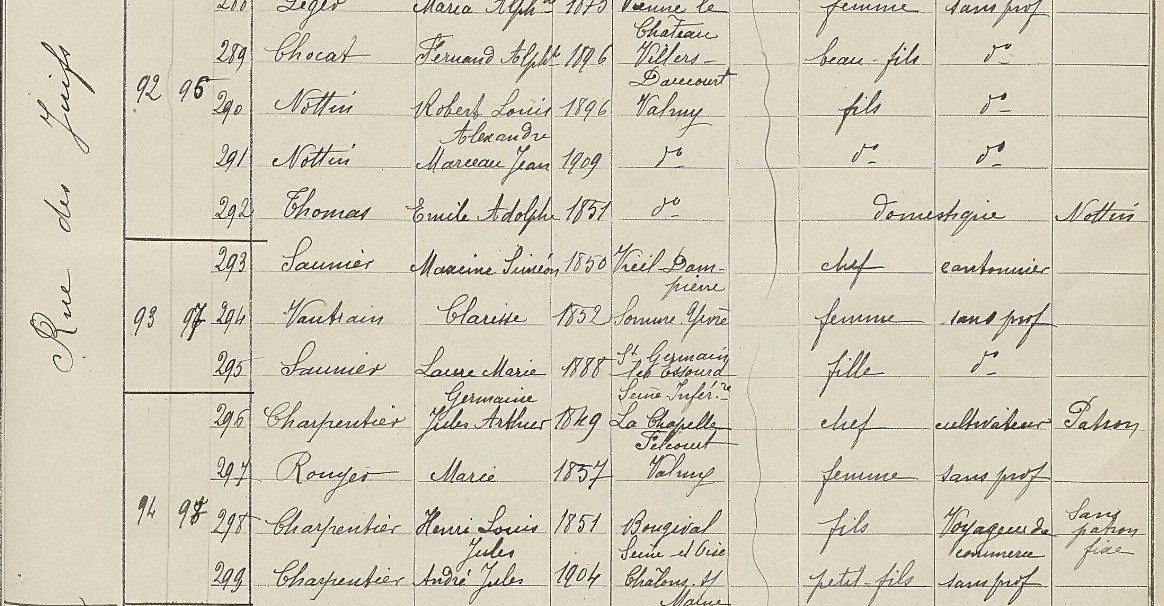 Rue des Juifs
288 Léger Maria Alph^ne 1873 Vienne le femme sans prof
Château
289 Chocat Fernand Alph^se 1896 Villers- beau-fils d°
Dancourt
92 96 290 Nottin Robert Louis 1896 Valmy fils d°
Alexandre
291 Nottin Marceau Jean 1909 d° d° d°
292 Thomas Emile Adolphe 1851 d° domestique Nottin
293 Saunier Maxime Siméon 1850 Vieil-Dam- chef cantonnier
pierre
93 97 294 Vautrain Clarisse 1852 Somme Yèvre femme sans prof
St Germain
295 Saunier Laure Marie 1888 fille d°
Germaine Seine Infér^re
296 Charpentier Jules Arthur 1849 La Chapelle chef cultivateur Patron
Felcourt
297 Rouyer Marie 1857 Valmy femme sans prof
Sans
94 98 298 Charpentier Henri Louis 1851 Bougival fils Voyageur de patron
Jules Seine et Oise commerce fixe
299 Charpentier André Jules 1904 Châlons s/ petit-fils sans prof
Marne